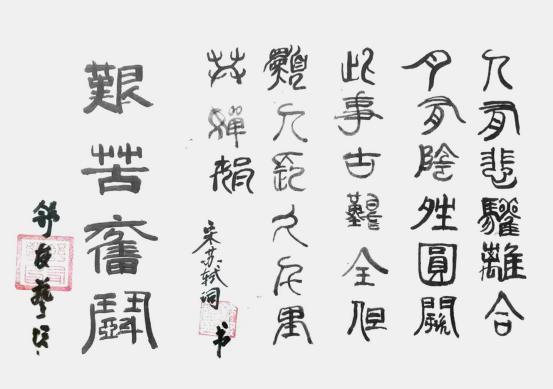 人有悲驩離合
月有陰夝圓闕
此事古難全但
願人長久千里
共嬋娟
宋苏轼词
书
艱苦奮鬥